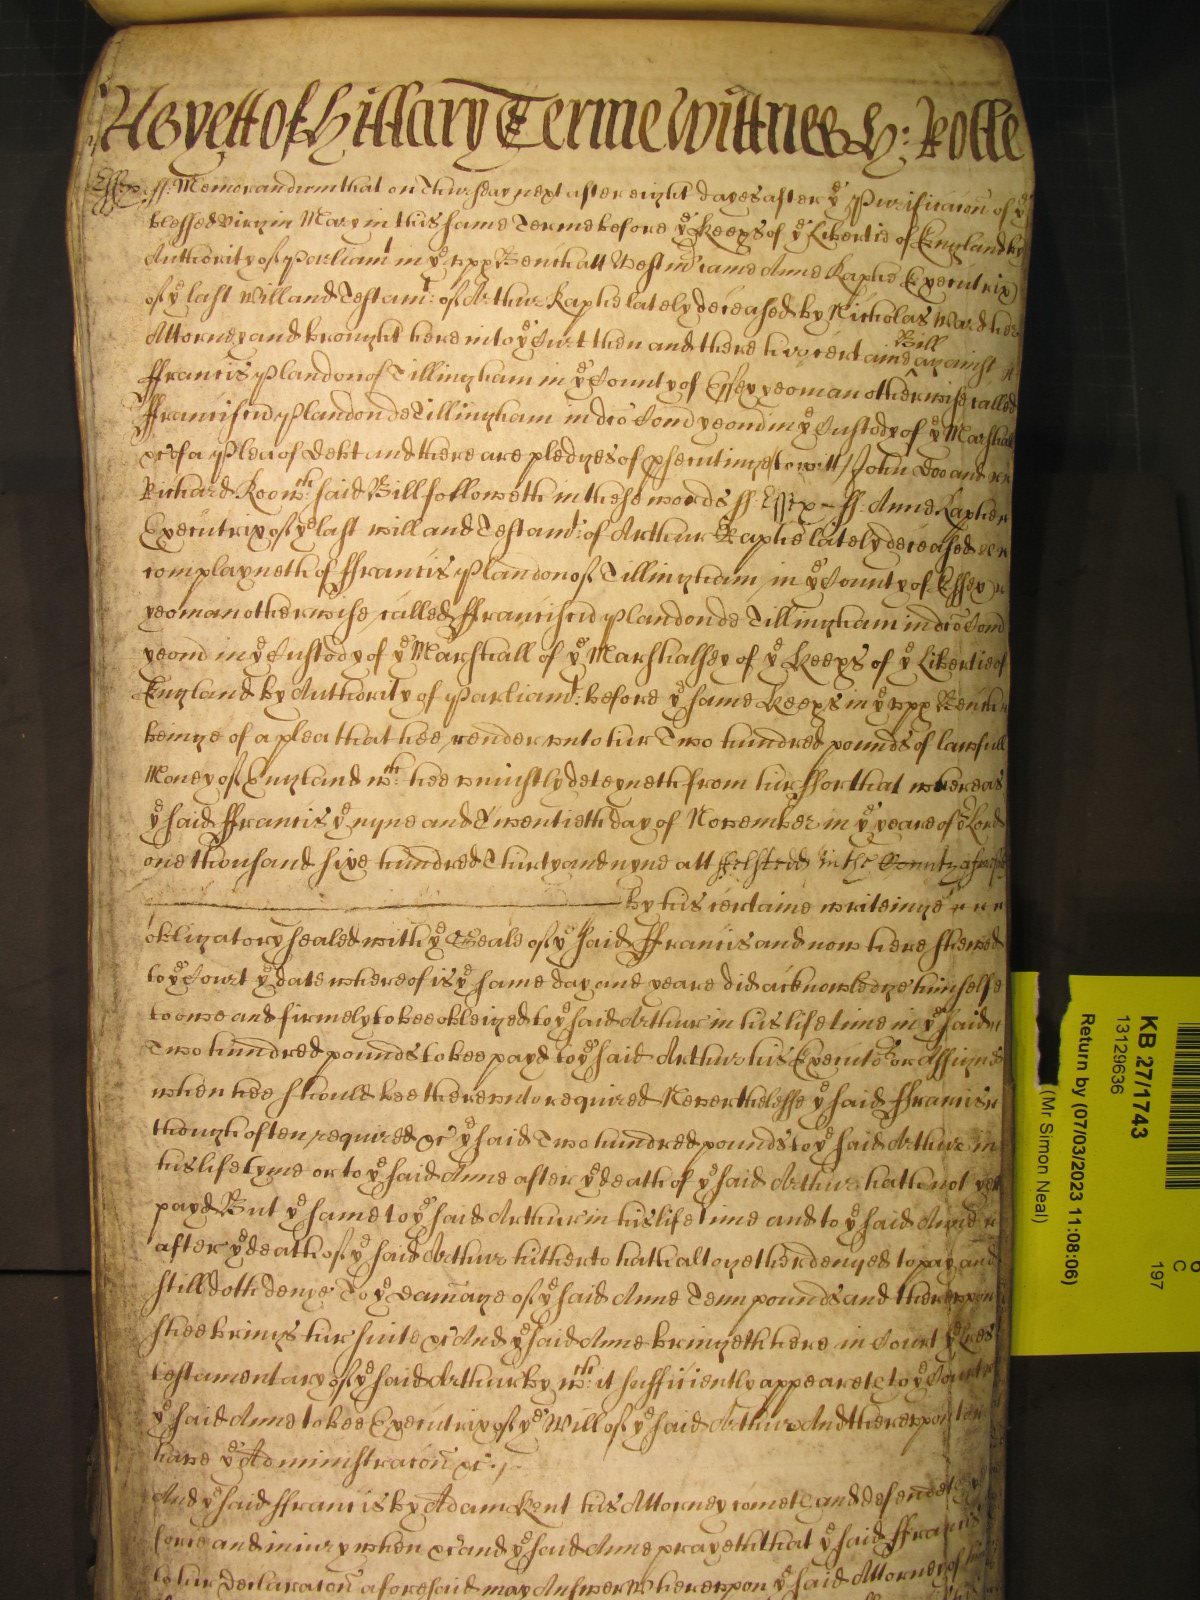 As yett of Hillary Terme Wittnes H: Rolle
Essex ss. Memorandum that on Thursday next after eight dayes after ye Purificacon of ye
blessed Virgin Mary in this same Terme before ye Keeps of ye Libertie of England by
Authority of Parliamt in ye upp Bench att Westmr came Anne Raphe Executrix
of ye last Will and Testamt: of Arthur Raphe lately deceased by Nicholas Ward her
Attorney and brought here into ye Court then and there his certaine Bill against
ffrancis Plandon of Tillingham in ye County of Essex yeoman otherwise called
ffranciscu Plandon de Tillingham in dco Com yeom in ye Custody of ye Marshall
&c of a Plea of Debt and there are pledges of psecutinge towitt John Doo and
Richard Roo wch: said Bill followeth in these words ss. Essex - ss. Anne Raphe
Executrix of ye last will and Testamt: of Arthur Raphe lately deceased
complayneth of ffrancis Plandon of Tillingham in ye County of Essex
yeoman otherwise called ffranciscu Plandon de Tillingham in dco Com
yeom in ye Custody of ye Marshall of ye Marshalsey of ye Keeps of ye Libertie of
England by Authority of Parliamt: before ye same Keeps in ye upp Bench
beinge of a plea that hee render unto hur Two hundred pounds of lawfull
Money of England wch: hee uniustly deteyneth from hur ffor that whereas
ye said ffrancis ye nyne and Twentieth day of November in ye yeare of or Lord
one thousand sixe hundred Thirty and nyne att ffelstedd in the County aforesd
by his certaine writeinge
obligatory sealed with ye Seale of ye said ffrancis and now here shewed
to ye Court ye date whereof is ye same day and yeare did acknowledge himselfe
to owe and firmely to bee obleiged to ye said Arthur in his life time in ye said
Two hundred pounds to bee payd to ye said Arthur his Executors or Assignes
when hee should bee thereunto required Neverthelesse ye said ffrancis
though often required &c ye said Two hundred pounds to ye said Arthur in
his life tyme or to ye said Anne after ye death of ye said Arthur hath not yett
payd But ye same to ye said Arthur in his life time and to ye said Anne
after ye death of ye said Arthur hitherto hath altogether denyed to pay and
still doth denye To ye damage of ye said Anne Tenn pounds and thereupon
shee brings hur suite &c And ye said Anne bringeth here in Court ye Lres
testamentary of ye said Arthur by wch: it sufficiently appeareth to ye Court
ye said Anne to bee Executrix of ye Will of ye said Arthur And thereupon to
have ye Administracon &c.
And ye said ffrancis by Adam Kent his Attorney cometh and defendeth ye
force and iniury when &c and ye said Anne prayeth that ye said ffrancis
to hur Declaracon aforesaid may Answer Whereupon ye said Attorney of
KB 27/1743
13129636
Return by (07/03/2023 11:08:06)
(Mr Simon Neal)
C
197